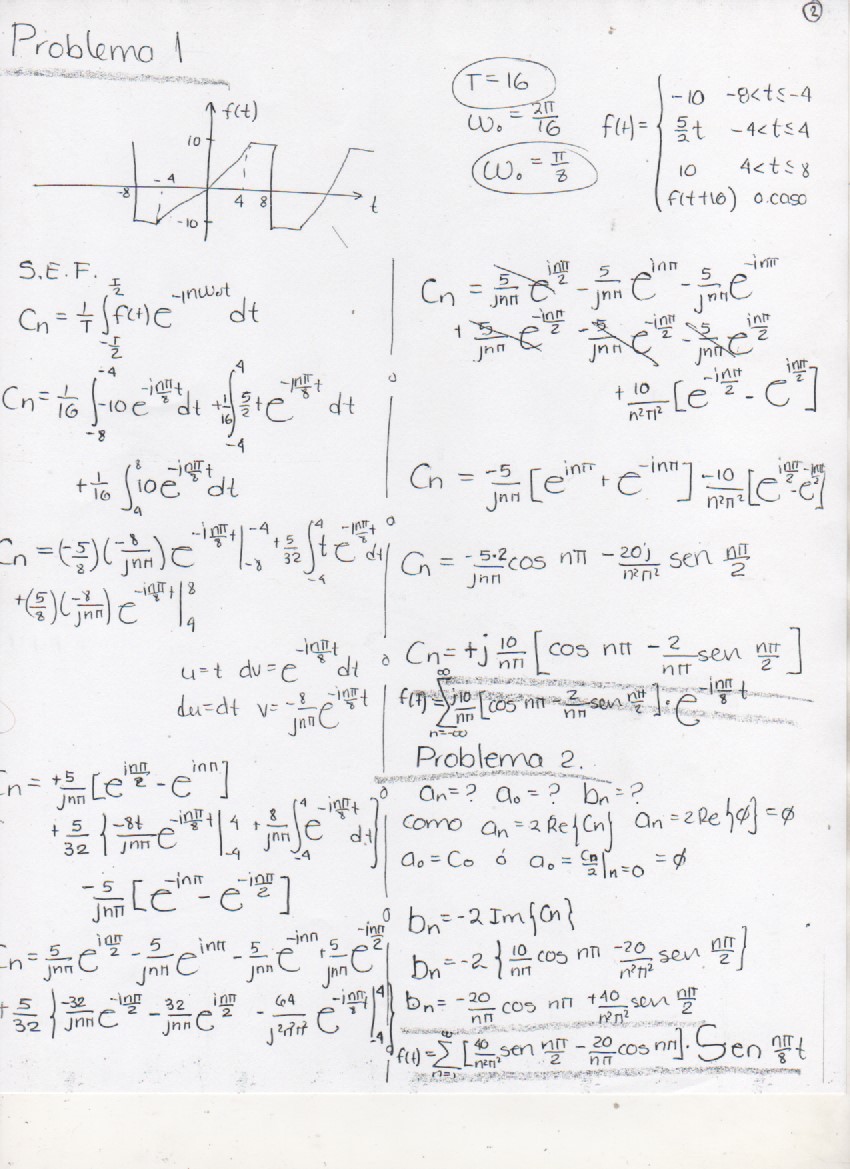 2
Problema 1
f(t)
10
-4
-8
4 8
t
-10
T = 16
ω₀ = 2π/16
ω₀ = π/8
f(t) = { -10 -8<t≤-4
5/2 t -4<t≤4
10 4<t≤8
f(t+16) o.caso
S.E.F.
Cn = 1/T ∫_{-T/2}^{T/2} f(t) e^{-jnω₀t} dt
Cn = 1/16 ∫_{-8}^{-4} -10 e^{-jnπ/8 t} dt + 1/16 ∫_{-4}^{4} 5/2 t e^{-jnπ/8 t} dt
+ 1/16 ∫_{4}^{8} 10 e^{-jnπ/8 t} dt
Cn = (-5/8)(-8/jnπ) e^{-jnπ/8 t} |_{-8}^{-4} + 5/32 ∫_{-4}^{4} t e^{-jnπ/8 t} dt
+(5/8)(-8/jnπ) e^{-jnπ/8 t} |_{4}^{8}
u=t dv = e^{-jnπ/8 t} dt
du=dt v= -8/jnπ e^{-jnπ/8 t}
Cn = +5/jnπ [e^{jnπ/2} - e^{jnπ}]
+ 5/32 { -8t/jnπ e^{-jnπ/8 t} |_{-4}^{4} + 8/jnπ ∫_{-4}^{4} e^{-jnπ/8 t} dt }
-5/jnπ [e^{-jnπ} - e^{-jnπ/2}]
Cn = 5/jnπ e^{jnπ/2} - 5/jnπ e^{jnπ} - 5/jnπ e^{-jnπ} + 5/jnπ e^{-jnπ/2}
+ 5/32 { -32/jnπ e^{-jnπ/2} - 32/jnπ e^{jnπ/2} - 64/j²n²π² e^{-jnπ/8 t} |_{-4}^{4} }
Cn = 5/jnπ e^{jnπ/2} - 5/jnπ e^{jnπ} - 5/jnπ e^{-jnπ}
+ 5/jnπ e^{-jnπ/2} - 5/jnπ e^{-jnπ/2} - 5/jnπ e^{jnπ/2}
+ 10/n²π² [e^{-jnπ/2} - e^{jnπ/2}]
Cn = -5/jnπ [e^{jnπ} + e^{-jnπ}] -10/n²π² [e^{jnπ/2} - e^{-jnπ/2}]
Cn = -5·2/jnπ cos nπ - 20j/n²π² sen nπ/2
Cn = +j 10/nπ [cos nπ - 2/nπ sen nπ/2]
f(t) = ∑_{n=-∞}^{∞} j10/nπ [cos nπ - 2/nπ sen nπ/2] · e^{-jnπ/8 t}
Problema 2.
an=? a₀=? bn=?
como an = 2Re{Cn} an = 2Re{∅} = ∅
a₀=C₀ ó a₀ = Cn/2 |n=0 = ∅
bn = -2 Im{Cn}
bn = -2 { 10/nπ cos nπ - 20/n²π² sen nπ/2 }
bn = -20/nπ cos nπ + 40/n²π² sen nπ/2
f(t) = ∑_{n=1}^{∞} [40/n²π² sen nπ/2 - 20/nπ cos nπ] · Sen nπ/8 t